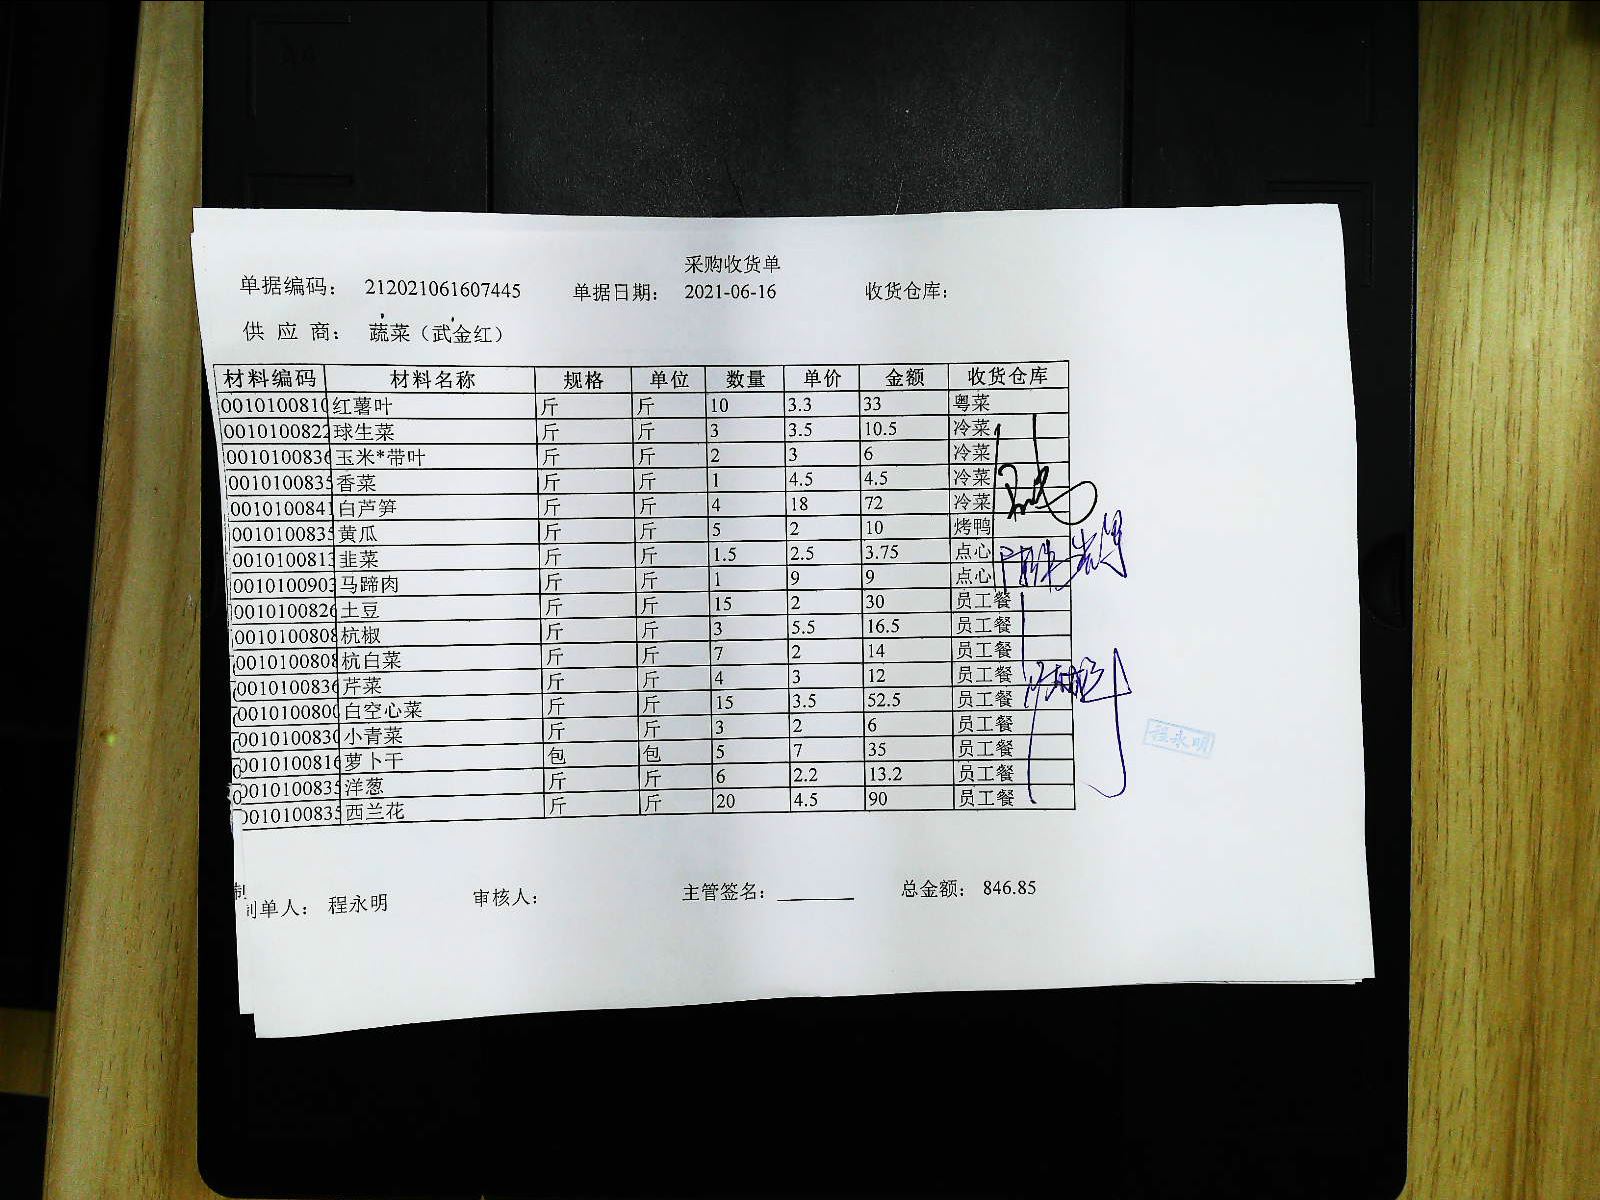 采购收货单
单据编码： 212021061607445 单据日期： 2021-06-16 收货仓库：
供 应 商： 蔬菜（武金红）
材料编码 材料名称 规格 单位 数量 单价 金额 收货仓库
0010100810 红薯叶 斤 斤 10 3.3 33 粤菜
0010100822 球生菜 斤 斤 3 3.5 10.5 冷菜
0010100836 玉米*带叶 斤 斤 2 3 6 冷菜
0010100835 香菜 斤 斤 1 4.5 4.5 冷菜
0010100841 白芦笋 斤 斤 4 18 72 冷菜
0010100835 黄瓜 斤 斤 5 2 10 烤鸭
0010100813 韭菜 斤 斤 1.5 2.5 3.75 点心
0010100903 马蹄肉 斤 斤 1 9 9 点心
0010100826 土豆 斤 斤 15 2 30 员工餐
0010100808 杭椒 斤 斤 3 5.5 16.5 员工餐
0010100808 杭白菜 斤 斤 7 2 14 员工餐
0010100836 芹菜 斤 斤 4 3 12 员工餐
0010100800 白空心菜 斤 斤 15 3.5 52.5 员工餐
0010100830 小青菜 斤 斤 3 2 6 员工餐
0010100816 萝卜干 包 包 5 7 35 员工餐
0010100835 洋葱 斤 斤 6 2.2 13.2 员工餐
0010100835 西兰花 斤 斤 20 4.5 90 员工餐
程永明
制单人： 程永明 审核人： 主管签名： 总金额： 846.85